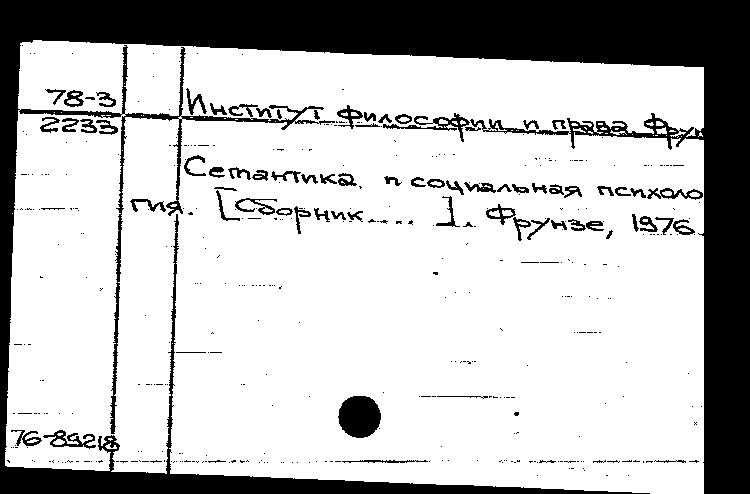 78-3
Институт философии и права. Фрун
2233
Семантика и социальная психоло
гия. [Сборник.... ]. Фрунзе, 1976.
76-89218